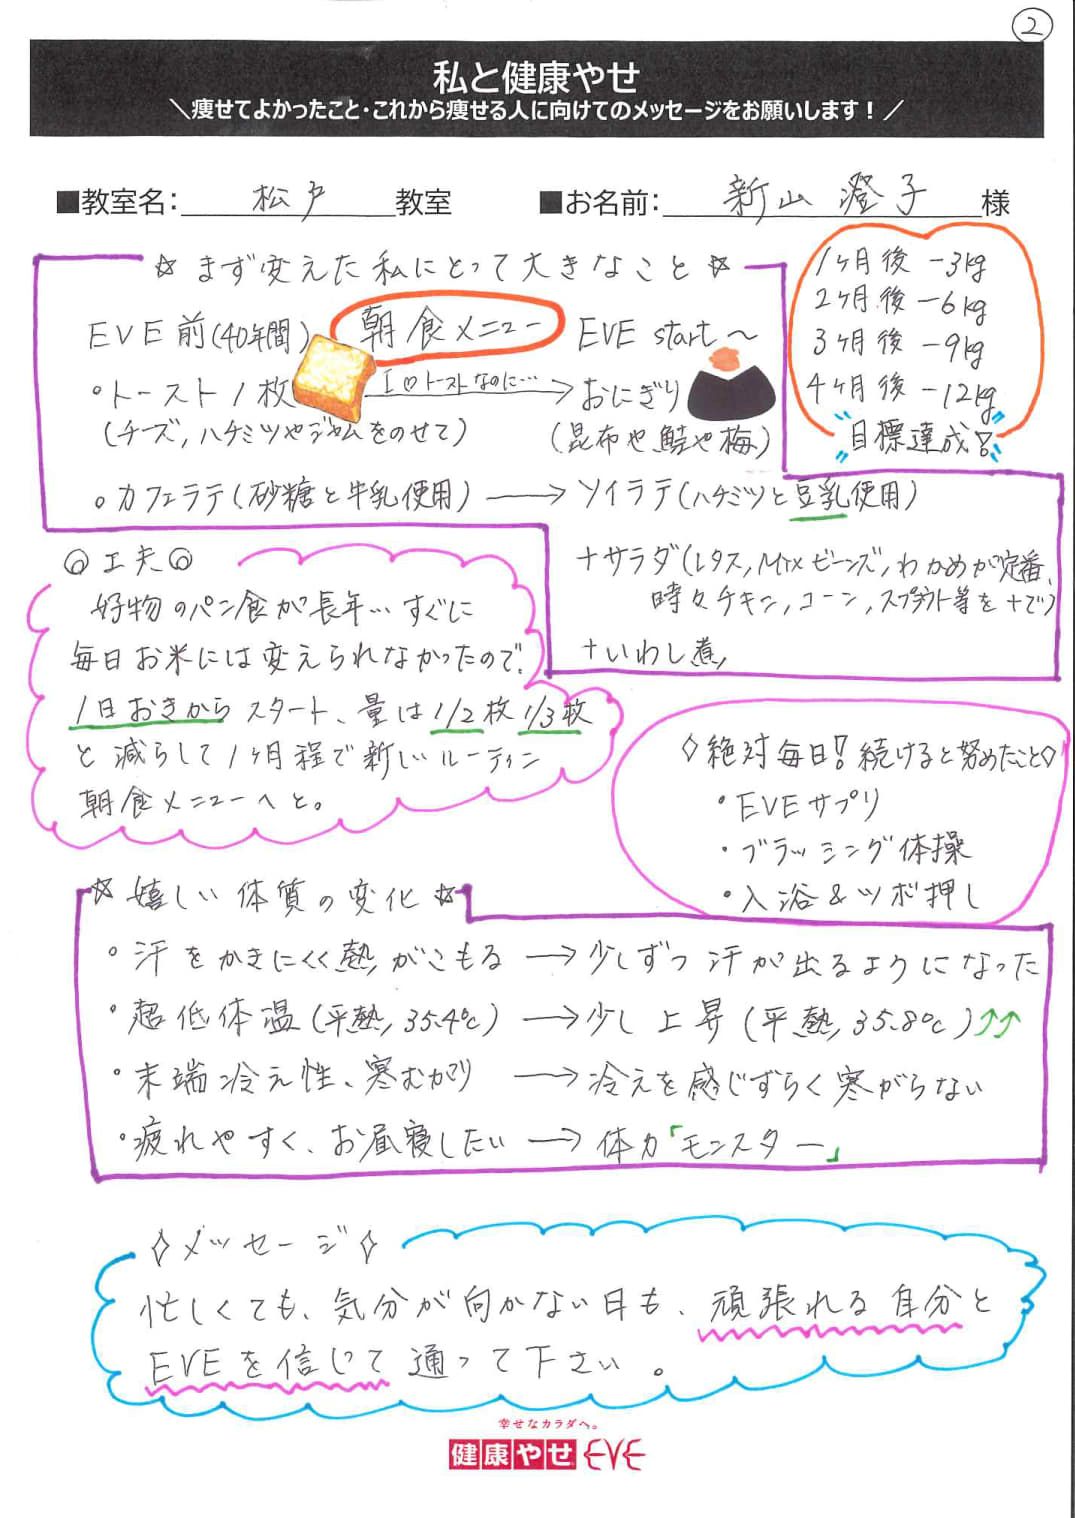 2
私と健康やせ
＼痩せてよかったこと・これから痩せる人に向けてのメッセージをお願いします！／
■教室名：松戸教室
■お名前：新山澄子様
☆まず変えた私にとって大きなこと☆
EVE前(40年間)
朝食メニュー
EVE start〜
・トースト1枚
I♡トーストなのに…
→おにぎり
(チーズ,ハチミツやジャムをのせて)
(昆布や鮭や梅)
・カフェラテ(砂糖と牛乳使用)→ソイラテ(ハチミツと豆乳使用)
+サラダ(レタス,Mixビーンズ,わかめが定番、
時々チキン,コーン,スプラウト等を+で)
+いわし煮
1ヶ月後 −3kg
2ヶ月後 −6kg
3ヶ月後 −9kg
4ヶ月後 −12kg
目標達成!
◎工夫◎
好物のパン食が長年…すぐに
毎日お米には変えられなかったので、
1日おきからスタート、量は1/2枚1/3枚
と減らして1ヶ月程で新しいルーティン
朝食メニューへと。
◇絶対毎日!続けると努めたこと◇
・EVEサプリ
・ブラッシング体操
・入浴&ツボ押し
☆嬉しい体質の変化☆
・汗をかきにくく熱がこもる→少しずつ汗が出るようになった
・超低体温(平熱35.4℃)→少し上昇(平熱35.8℃)↑↑
・末端冷え性、寒むがり→冷えを感じずらく寒がらない
・疲れやすく、お昼寝したい→体力「モンスター」
◇メッセージ◇
忙しくても、気分が向かない日も、頑張れる自分と
EVEを信じて通って下さい。
幸せなカラダへ。
健康やせEVE